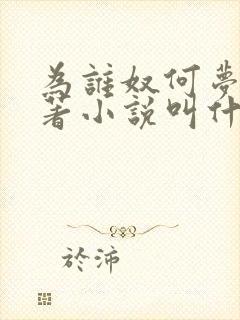 為誰奴何夢
著小說叫什
於沛